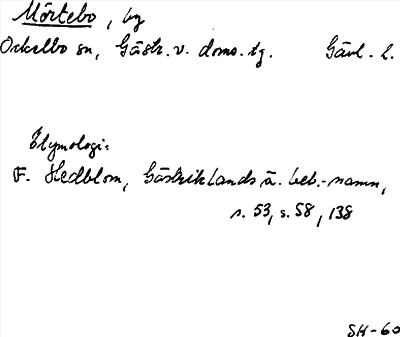 Mörtebo, by
Ockelbo sn, Gästr. v. doms. tg. Gävl. l.
Etymologi:
F. Hedblom, Gästriklands ä. beb.-namn,
s. 53, s. 58, 138
SH-60